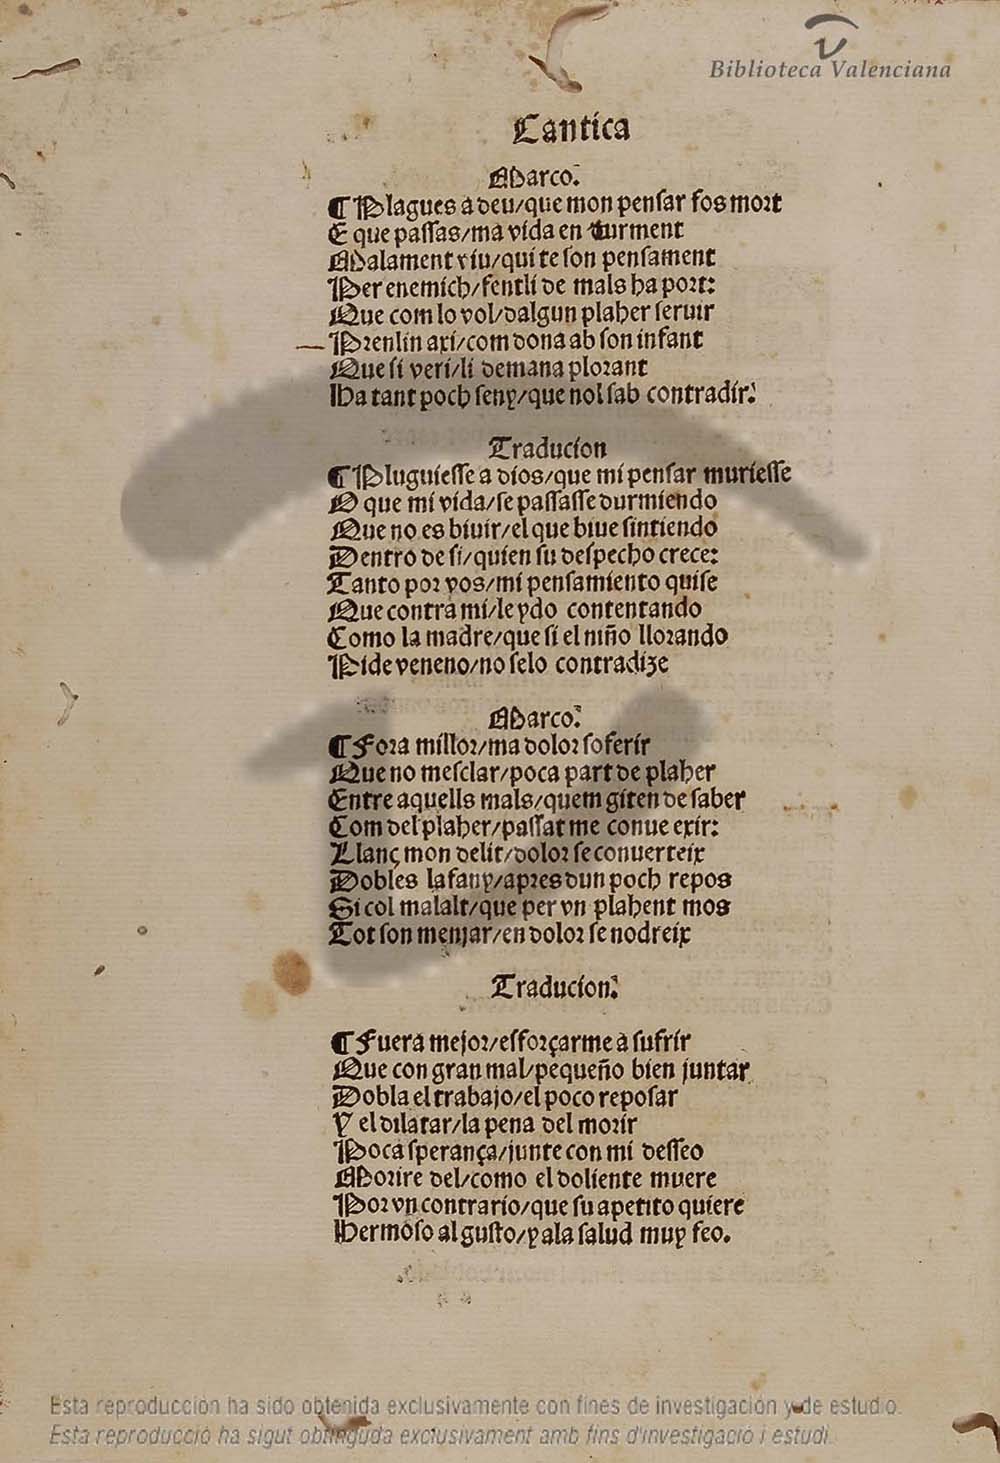 Biblioteca Valenciana
Cantica
Marco.
¶ Plagues a deu/que mon pensar fos mort
E que passas/ma vida en turment
Malament viu/qui te son pensament
Per enemich/fentli de mals ha port:
Que com lo vol/dalgun plaher seruir
Prenlin axi/com dona ab son infant
Que si veri/li demana plorant
Ha tant poch seny/que nol sab contradir.
Traducion
¶ Pluguiesse a dios/que mi pensar muriesse
O que mi vida/se passasse durmiendo
Que no es biuir/el que biue sintiendo
Dentro de si/quien su despecho crece:
Tanto por vos/mi pensamiento quise
Que contra mi/le ydo contentando
Como la madre/que si el niño llorando
Pide veneno/no selo contradize
Marco.
¶ Fora millor/ma dolor soferir
Que no mesclar/poca part de plaher
Entre aquells mals/quem giten de saber
Com del plaher/passat me conue exir:
Llanç mon delit/dolor se conuerteix
Dobles lafany/apres dun poch repos
Si col malalt/que per vn plahent mos
Tot son menjar/en dolor se nodreix
Traducion.
¶ Fuera mejor/esforçarme a sufrir
Que con gran mal/pequeño bien juntar
Dobla el trabajo/el poco reposar
Y el dilatar/la pena del morir
Poca sperança/junte con mi desseo
Morire del/como el doliente muere
Por vn contrario/que su apetito quiere
Hermoso al gusto/y ala salud muy feo.
Esta reproducción ha sido obtenida exclusivamente con fines de investigación y de estudio.
Esta reproducció ha sigut obtinguda exclusivament amb fins d'investigació i estudi.